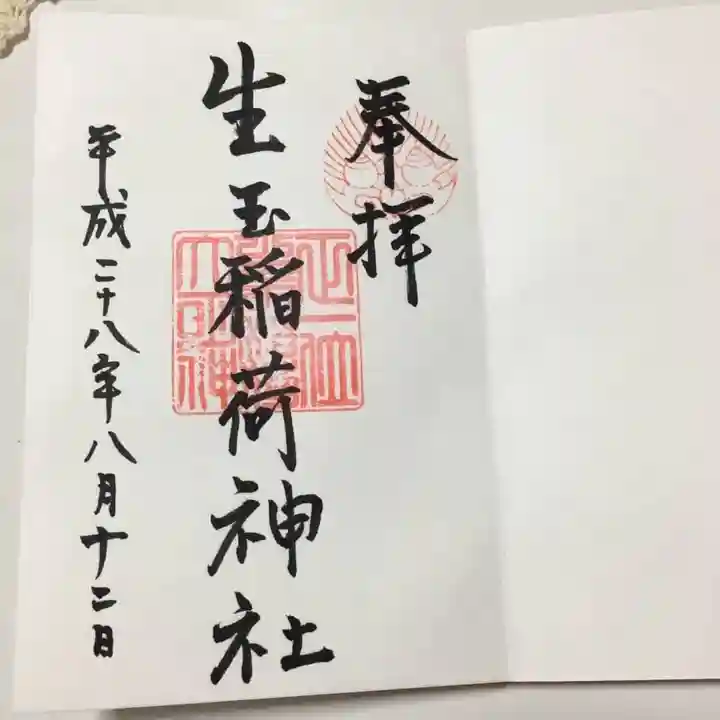 奉拝
生玉稲荷神社
平成二十八年八月十二日
正一位